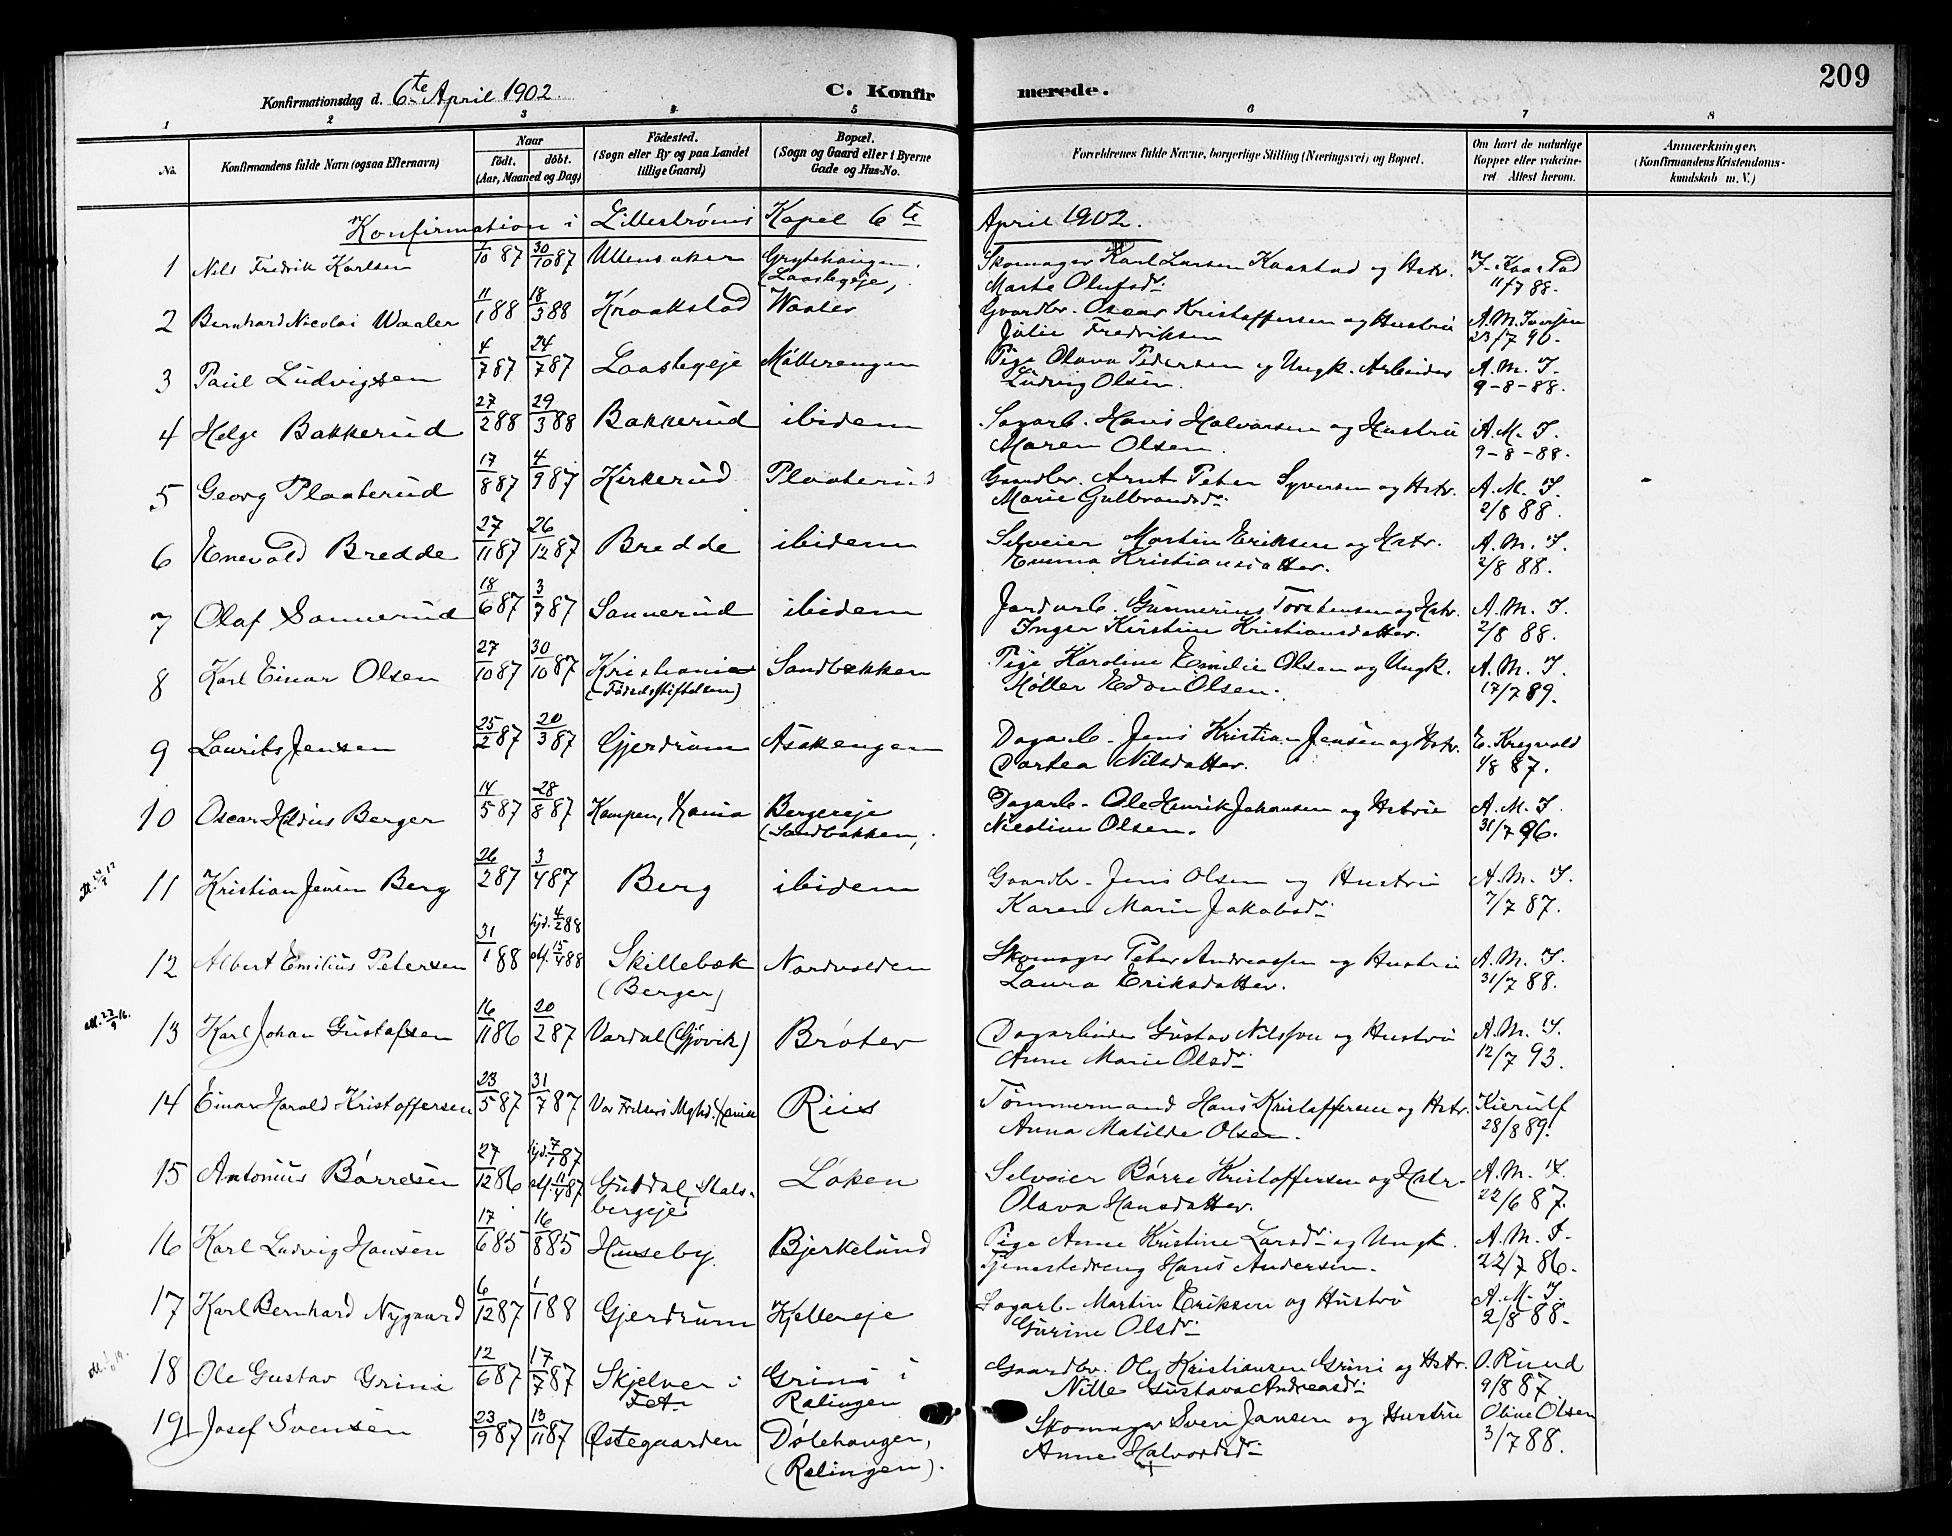 209
Konfirmationsdag d. 6te April 1902.
C. Konfirmerede.
1 2 3 4 5 6 7 8
No. Konfirmandens fulde Navn (ogsaa Efternavn) Naar födt. döbt. (Aar, Maaned og Dag) Födested. (Sogn eller By og paa Landet tillige Gaard) Bopæl. (Sogn og Gaard eller i Byerne Gade og Hus-No. Forældrenes fulde Navne, borgerlige Stilling (Næringsvei) og Bopæl. Om havt de naturlige Kopper eller vaccineret Attest herom. Anmærkninger. (Konfirmandens Kristendomskundskab m. V.)
Konfirmation i Lillestrøms Kapel 6te April 1902.
1 Nils Fredrik Karlsen 1/10 87 30/10 87 Ullensaker Grytehaugen (Laasbyeje) Skomager Karl Larsen Kaastad og Hstr. Marte Olufsdr. J. Kaastad 11/7 88.
2 Bernhard Nicolai Waaler 11/1 88 18/3 88 Kraakstad Waaler Gaardbr. Oscar Kristoffersen og Hustru Julie Fredriksen A. M. Iversen 23/7 90.
3 Paul Ludvigsen 4/7 87 24/7 87 Laasbyeje Møllerengen Pige Olava Pedersen og Ungk. Arbeider Ludvig Olsen. A. M. I. 9-8-88.
4 Helge Bakkerud 27/2 88 29/3 88 Bakkerud ibidem Sagarb. Hans Halvorsen og Hustru Maren Olsen. A. M. I. 9-8-88.
5 Georg Plaaterud 17/8 87 4/9 87 Kirkerud Plaaterud Gaardbr. Arnt Peter Syversen og Hstr. Marie Gulbrandsdr. A. M. I. 2/8 88.
6 Enevold Bredde 27/11 87 26/12 87 Bredde ibidem Selveier Martin Eriksen og Hstr. Emma Kristiansdatter. A. M. I. 2/8 88.
7 Olaf Sannerud 18/6 87 3/7 87 Sannerud ibidem Jordarb. Gunnerius Torstensen og Hstr. Inger Kirstine Kristiansdatter. A. M. I. 2/8 88.
8 Karl Einar Olsen 27/10 87 30/10 87 Kristiania (Fødselsstiftelsen) Sandbækken Pige Karoline Emilie Olsen og Ungk. Møller Edvin Olsen. A. M. I. 17/7 89.
9 Laurits Jensen 25/2 87 20/3 87 Gjerdrum Asakengen Dagarb. Jens Kristian Jensen og Hstr. Dortea Nilsdatter. E. Kregvold 4/8 87.
10 Oscar Hildius Berger 14/5 87 28/8 87 Kampen, Kania Bergereje (Sandbækken) Dagarb. Ole Henrik Johansen og Hstru Nicoline Olsen. A. M. I. 31/7 96.
11 Kristian Jensen Berg 26/2 87 3/4 87 Berg ibidem Gaardbr. Jens Olsen og Hustru Karen Marie Jakobsdr. A. M. I. 7/7 87.
12 Albert Emilius Petersen 31/1 88 hjd. 4/2 88 stf. 15/4 88 Skillebæk (Berger) Nordvolden Skomager Peter Andreassen og Hustru Laura Eriksdatter. A. M. I. 31/7 88.
13 Karl Johan Gustafsen 16/11 86 20/2 87 Vardal (Gjøvik) Brøter Dagarbeider Gustav Nilsson og Hustru Anne Marie Olsdr. A. M. I. 12/7 93.
14 Einar Harald Kristoffersen 23/5 87 31/7 87 Vor Frelsers Mghd. Kania Riis Tømmermand Hans Kristoffersen og Hstr. Anna Matilde Olsen. Kierulf 28/8 89.
15 Antonius Børresen 27/12 86 hjd. 7/1 87 stf. 11/4 87 Guldal, Stalsbergeje Løken Selveier Børre Kristoffersen og Hstr. Olava Hansdatter. A. M. I. 22/6 87.
16 Karl Ludvig Hansen 17/6 85 16/8 85 Huseby Bjerkelund Pige Anne Kristine Larsdr. og Ungk. Tjenestedreng Hans Andersen. A. M. I. 22/7 86.
17 Karl Bernhard Nygaard 6/12 87 1/1 88 Gjerdrum Kjellereje Sagarb. Martin Eriksen og Hustru Gurine Olsdr. A. M. I. 2/8 88.
18 Ole Gustav Grini 12/6 87 17/7 87 Skjelver i Fet Grini i Rælingen Gaardbr. Ole Kristiansen Grini og Hstr. Nille Gustava Andreasdr. O. Ruud 9/8 87
19 Josef Svensen 23/9 87 13/11 87 Østegaarden Dølehaugen, (Rælingen). Skomager Sven Jansen og Hustru Anne Halvorsdr. Oline Olsen 3/7 88.